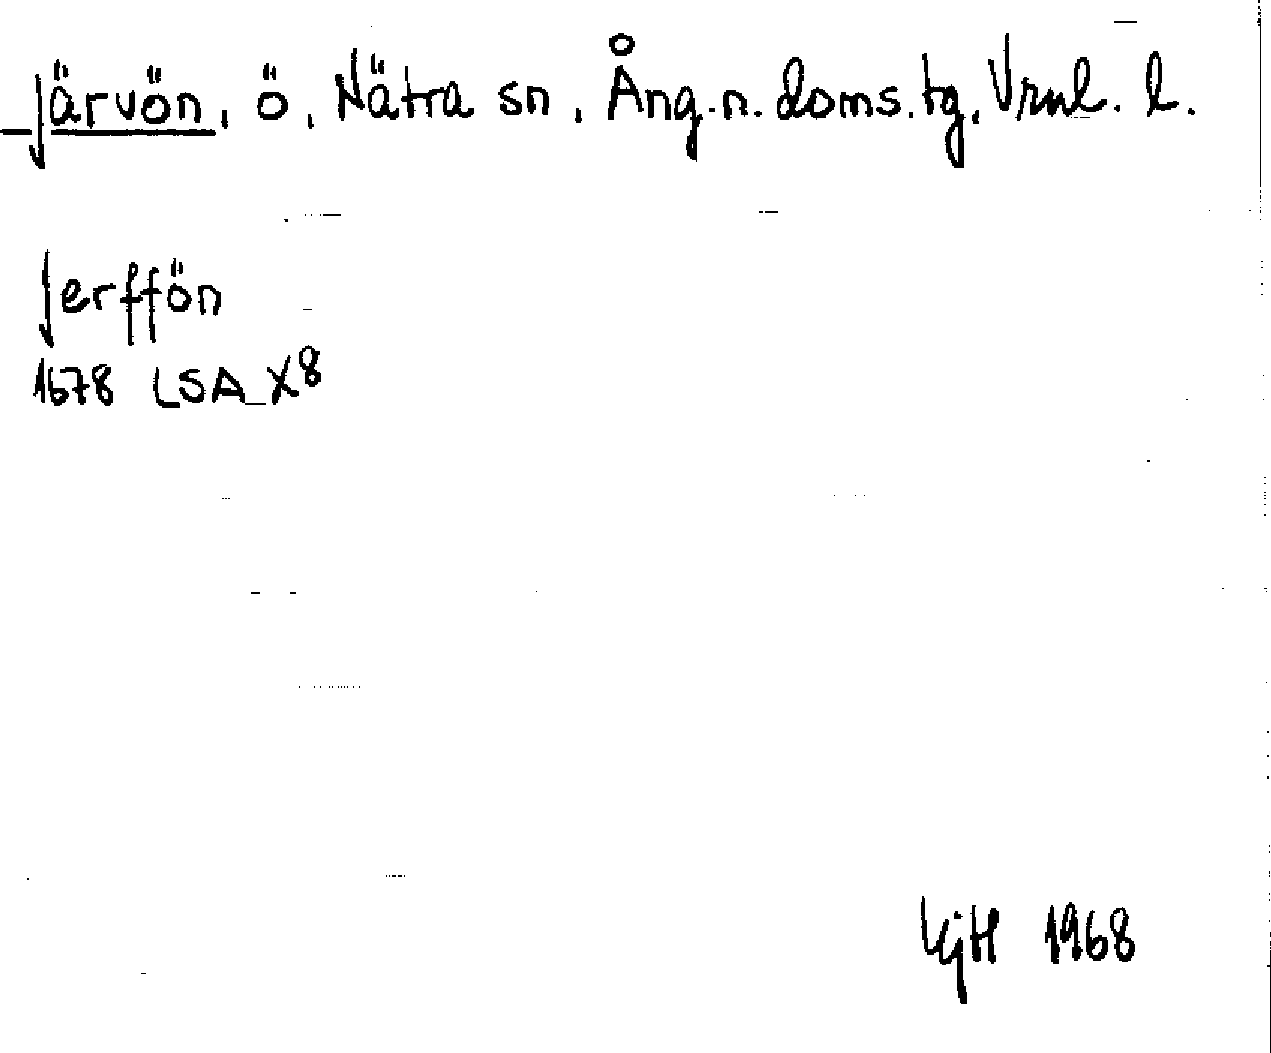 Järvön, ö, Nätra sn, Ång.n. doms.tg, Vrnl. l.
Jerffön
1678 LSA X8
LGH 1968